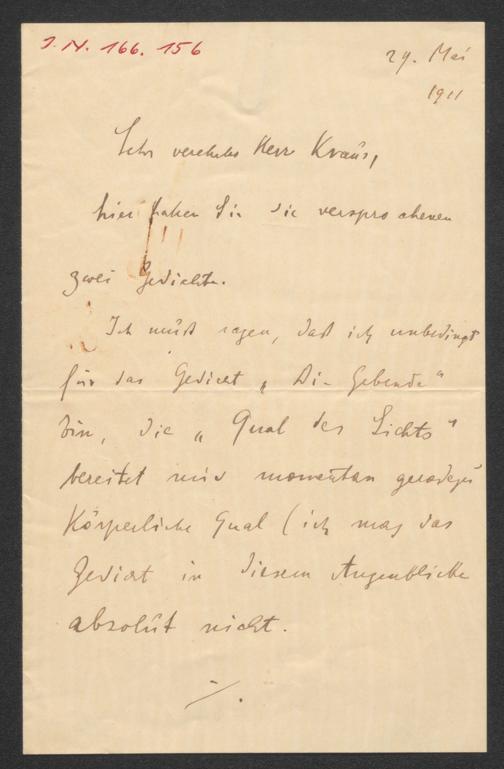 I. N. 166. 156
29. Mai
1911
Sehr verehrter Herr Kraus,
hier haben Sie die versprochenen
zwei Gedichte.
Ich muß sagen, daß ich unbedingt
für das Gedicht „Die Gebende“
bin, die „Qual des Lichts“
bereitet mir momentan geradezu
Körperliche Qual (ich mag das
Gedicht in diesem Augenblicke
absolut nicht.
/.